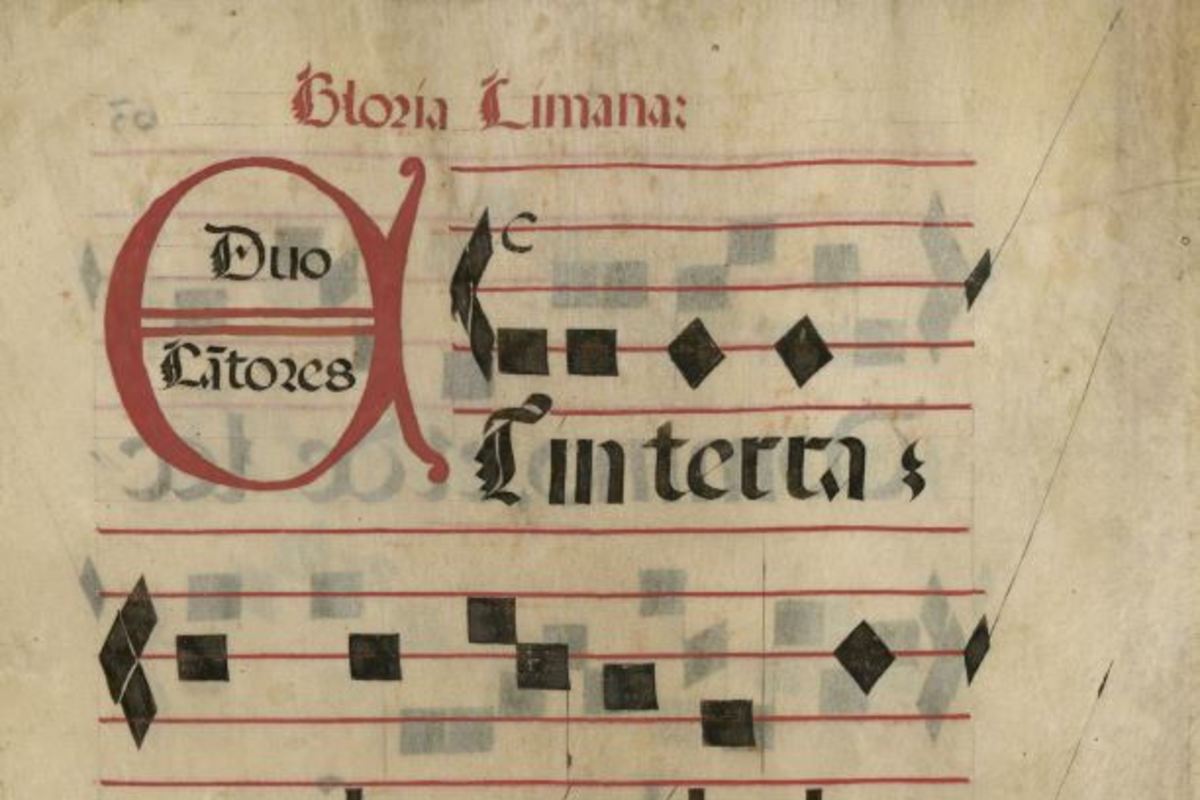 Gloria Limana:
Duo
Cãtores
Et in terra